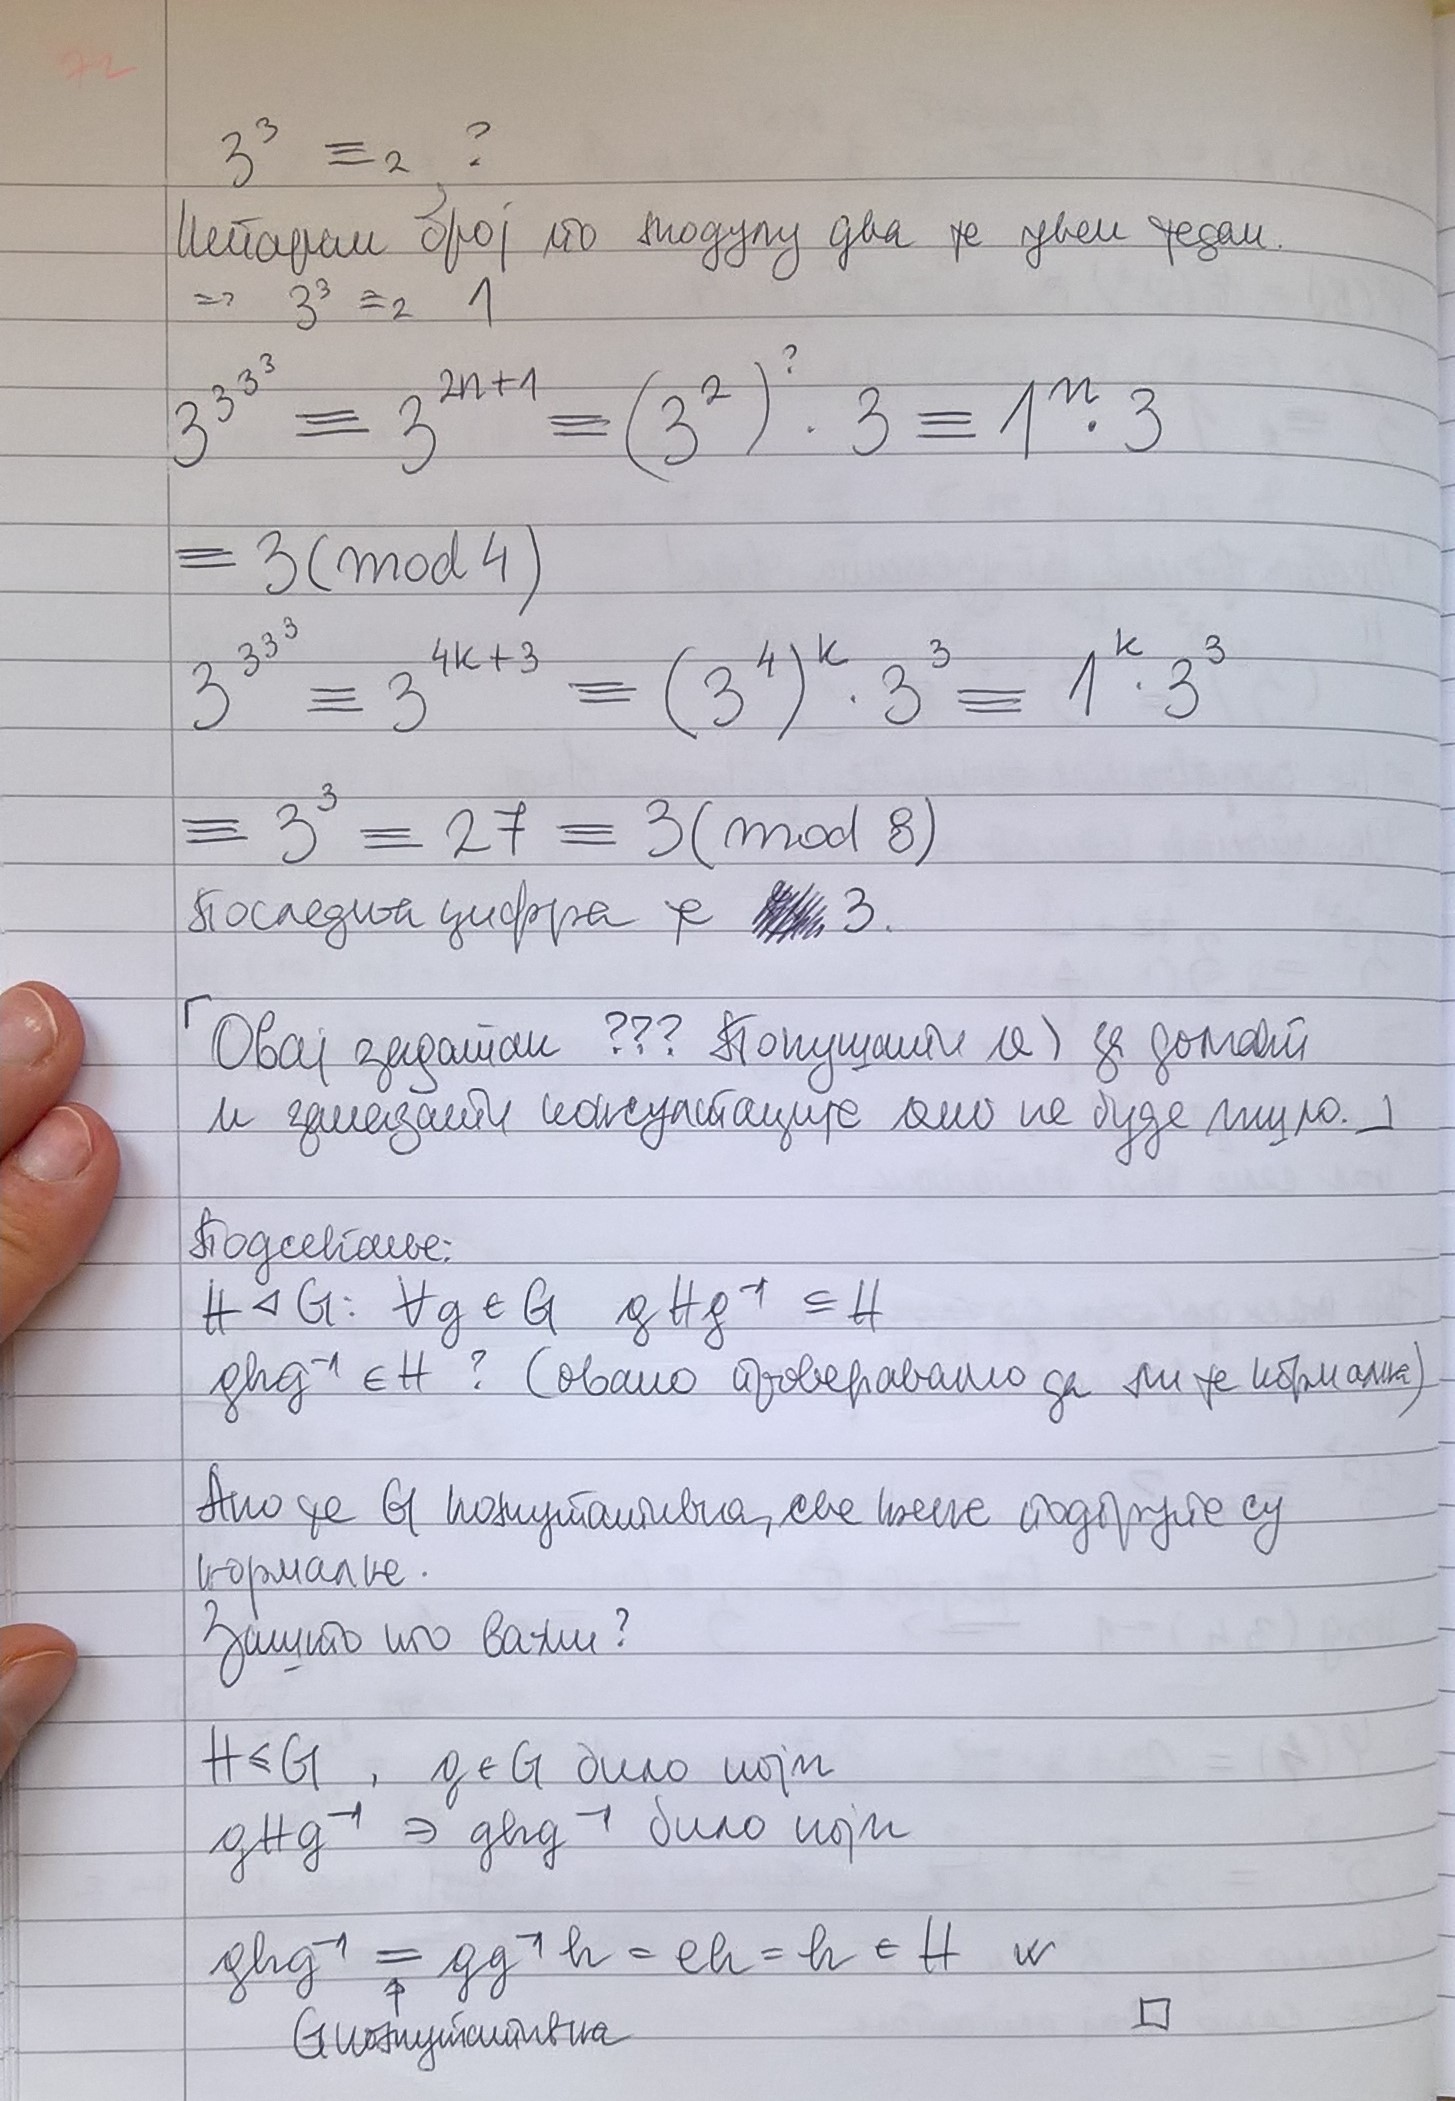 3^3 ≡_2 ?
Непаран број по модулу два је увек један.
=> 3^3 ≡_2 1
3^{3^{3^3}} ≡ 3^{2n+1} ≡ (3^2)^? · 3 ≡ 1^n · 3
≡ 3 (mod 4)
3^{3^{3^3}} ≡ 3^{4k+3} ≡ (3^4)^k · 3^3 ≡ 1^k · 3^3
≡ 3^3 ≡ 27 ≡ 3 (mod 8)
Последња цифра је 3.
⌈ Овај задатак ??? Покушати за домаћи
и заказати консултације ако не буде ишло. ⌋
Подсећање:
H ⊲ G: ∀g ∈ G gHg^{-1} ⊆ H
ghg^{-1} ∈ H ? (овако проверавамо да ли је нормална)
Ако је G комутативна, све њене подгрупе су
нормалне.
Зашто ово важи?
H ≤ G , g ∈ G било који
gHg^{-1} ∋ ghg^{-1} било који
ghg^{-1} = gg^{-1}h = eh = h ∈ H
↑
G комутативна □